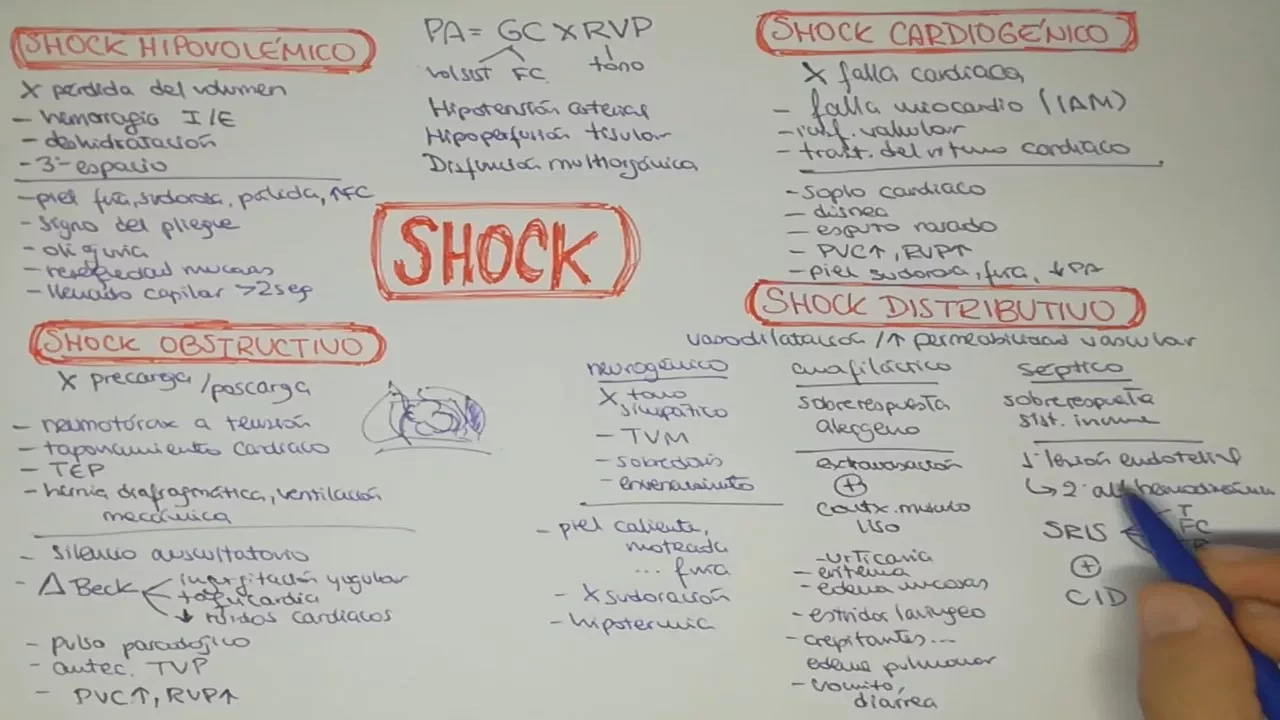 SHOCK HIPOVOLÉMICO
X pérdida del volumen
- hemorragia I/E
- deshidratación
- 3º espacio
- piel fría, sudorosa, pálida, ↑FC
- signo del pliegue
- oliguria
- resequedad mucosas
- llenado capilar >2seg
PA= GC X RVP
volsist FC tono
Hipotensión arterial
Hipoperfusión tisular
Disfunción multiorgánica
SHOCK
SHOCK CARDIOGÉNICO
X falla cardiaca
- falla miocardio (IAM)
- insf. valvular
- trast. del ritmo cardiaco
- soplo cardiaco
- disnea
- esputo rosado
- PVC↑, RVP↑
- piel sudorosa, fría, ↓PA
SHOCK OBSTRUCTIVO
X precarga/poscarga
- neumotórax a tensión
- taponamiento cardiaco
- TEP
- hernia diafragmática, ventilación
mecánica
- silencio auscultatorio
- Δ Beck
ingurgitación yugular
↓ ruidos cardiacos
- pulso paradójico
- antec. TVP
- PVC↑, RVP↑
SHOCK DISTRIBUTIVO
vasodilatación/↑ permeabilidad vascular
neurogénico
X tono
simpático
- TVM
- sobredosis
- envenenamiento
- piel caliente,
moteada
... fría
- X sudoración
- hipotermia
anafiláctico
sobrerespuesta
alergeno
extravasación
+
contx. musculo
liso
- urticaria
- eritema
- edema mucosas
- estridor laríngeo
- crepitantes...
edema pulmonar
- vomito,
diarrea
séptico
sobrerespuesta
sist. inmune
1º lesión endotelial
↳ 2º alt hemodinámica
SRIS
T
FC
+
CID